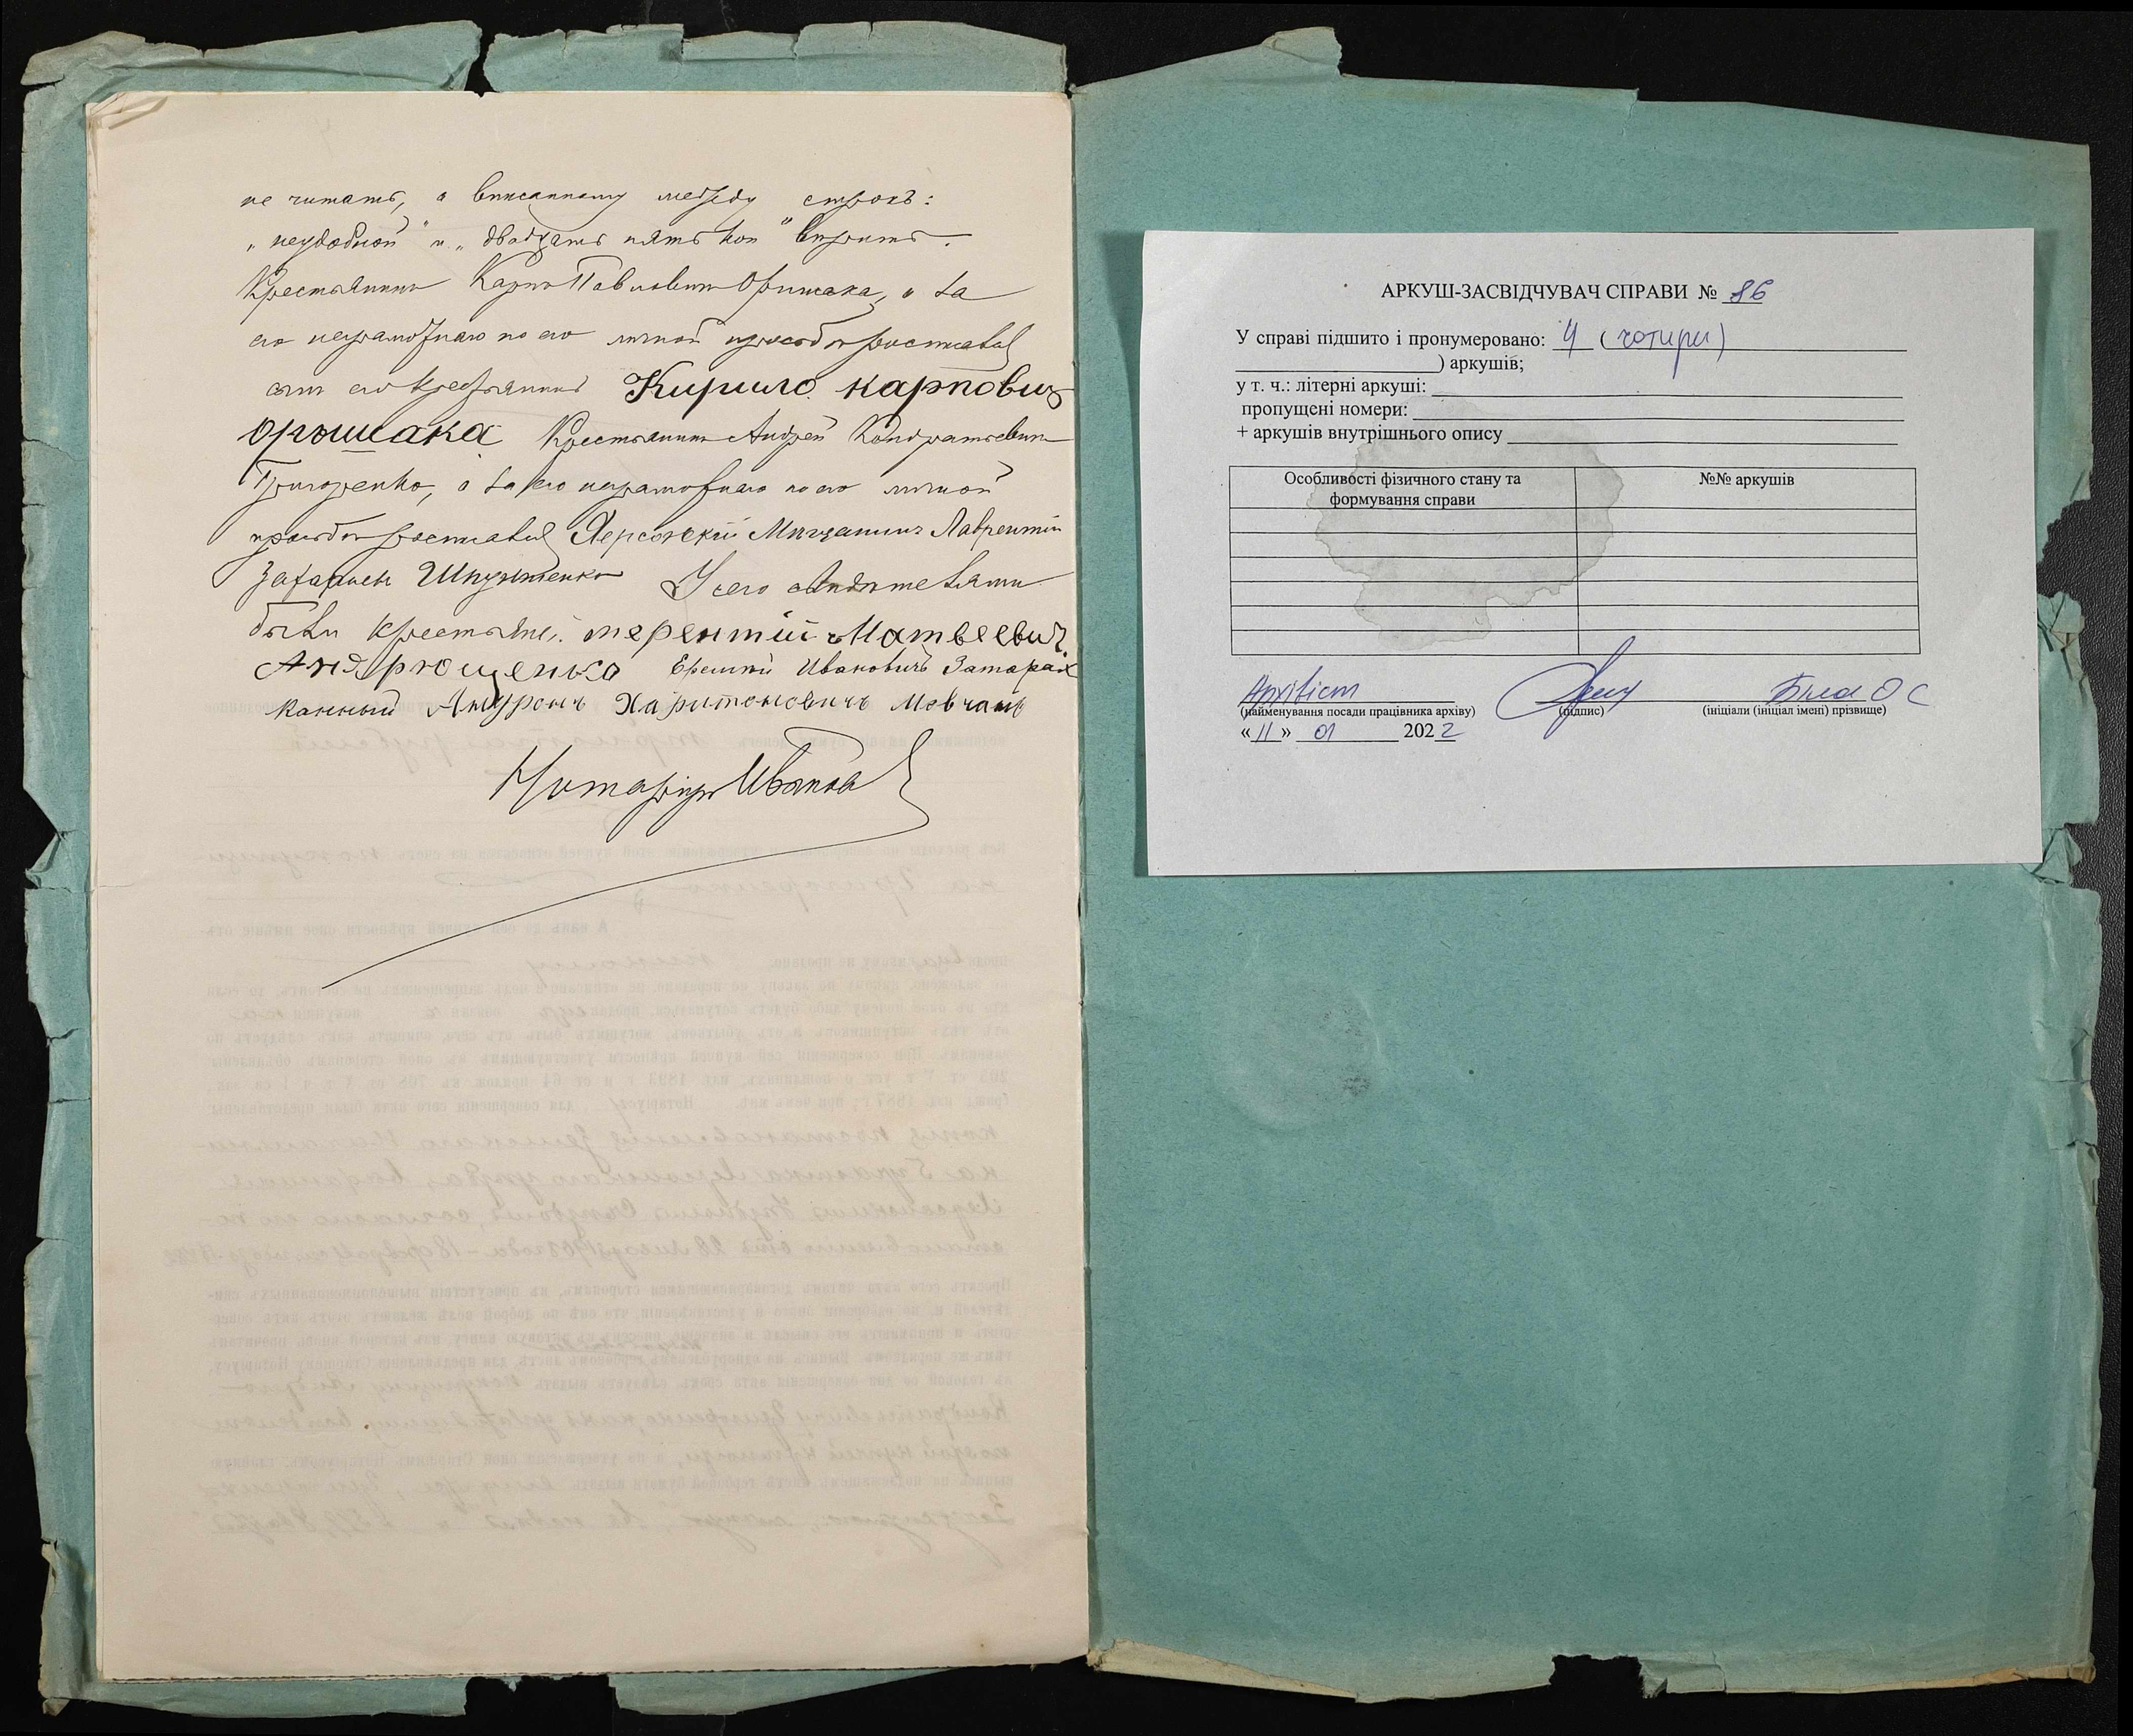 не читать, а вписанному между строкъ:
„неудобной“ и „двадцать пять коп“ вѣрить.
Крестьянинъ Карпъ Павловичъ Орышака, а за
его неграмотнаго по его личной просьбѣ росписался
сынъ его крестьянинъ Кирило карповичъ
Орышака Крестьянинъ Андрей Кондратьевичъ
Григоренко, а за него неграмотнаго по его личной
просьбѣ росписался Херсонскій Мѣщанинъ Лаврентій
Захарьевъ У сего свидѣтелями
были крестьяне: терентій Матвеевич
Андрющенко Ефимій Ивановичъ Затарай
канный Харитоновичъ Мовчанъ
Нотаріусъ Ивановъ
АРКУШ-ЗАСВІДЧУВАЧ СПРАВИ № 86
У справі підшито і пронумеровано: 4 (чотири)
) аркушів;
у т. ч.: літерні аркуші:
пропущені номери:
+ аркушів внутрішнього опису
Особливості фізичного стану та формування справи
№№ аркушів
Архівіст Біла О С
(найменування посади працівника архіву) (підпис) (ініціали (ініціал імені) прізвище)
« 11 » 01 2022